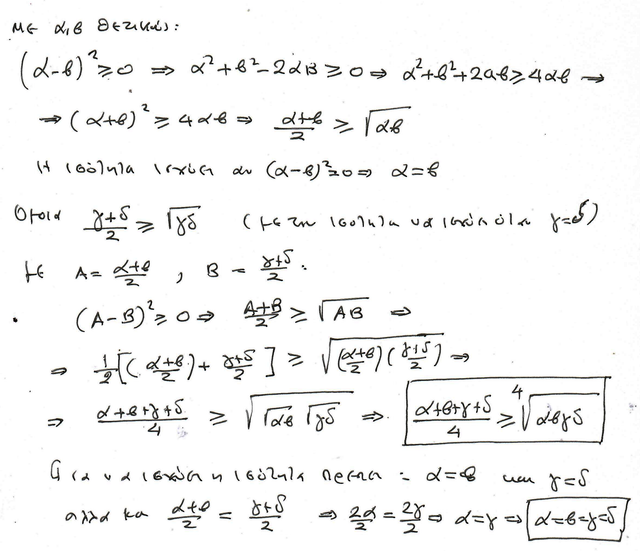 με α,β θετικούς:
(α-β)² ≥ 0 ⇒ α²+β²-2αβ ≥ 0 ⇒ α²+β²+2αβ ≥ 4αβ ⇒
⇒ (α+β)² ≥ 4αβ ⇒ (α+β)/2 ≥ √(αβ)
Η ισότητα ισχύει αν (α-β)²=0 ⇒ α=β
Όμοια (γ+δ)/2 ≥ √(γδ) (με την ισότητα να ισχύει όταν γ=δ)
με A = (α+β)/2 , B = (γ+δ)/2 :
• (A-B)² ≥ 0 ⇒ (A+B)/2 ≥ √(AB) ⇒
⇒ 1/2[((α+β)/2) + (γ+δ)/2] ≥ √(((α+β)/2)((γ+δ)/2)) ⇒
⇒ (α+β+γ+δ)/4 ≥ √(√(αβ) √(γδ)) ⇒ (α+β+γ+δ)/4 ≥ ⁴√(αβγδ)
Για να ισχύει η ισότητα πρέπει : α=β και γ=δ
αλλά και (α+β)/2 = (γ+δ)/2 ⇒ 2α/2 = 2γ/2 ⇒ α=γ ⇒ α=β=γ=δ